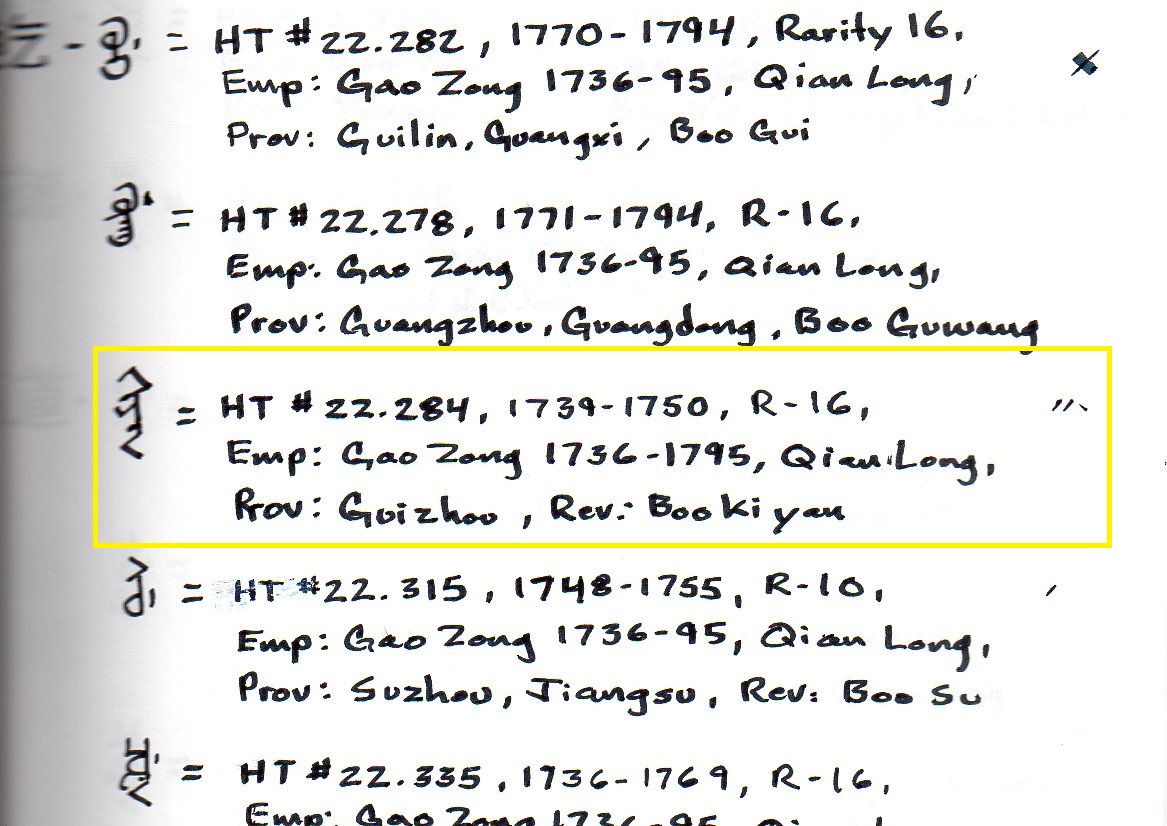 = HT #22.282, 1770-1794, Rarity 16,
Emp: Gao Zong 1736-95, Qian Long,
Prov: Guilin, Guangxi, Boo Gui
= HT #22.278, 1771-1794, R-16,
Emp: Gao Zong 1736-95, Qian Long,
Prov: Guangzhou, Guangdong, Boo Guwang
= HT #22.284, 1739-1750, R-16,
Emp: Gao Zong 1736-1795, Qian Long,
Prov: Guizhou, Rev: Boo Kiyan
= HT #22.315, 1748-1755, R-10,
Emp: Gao Zong 1736-95, Qian Long,
Prov: Suzhou, Jiangsu, Rev: Boo Su
= HT #22.335, 1736-1769, R-16,
Emp: Gao Zong 1736-95,